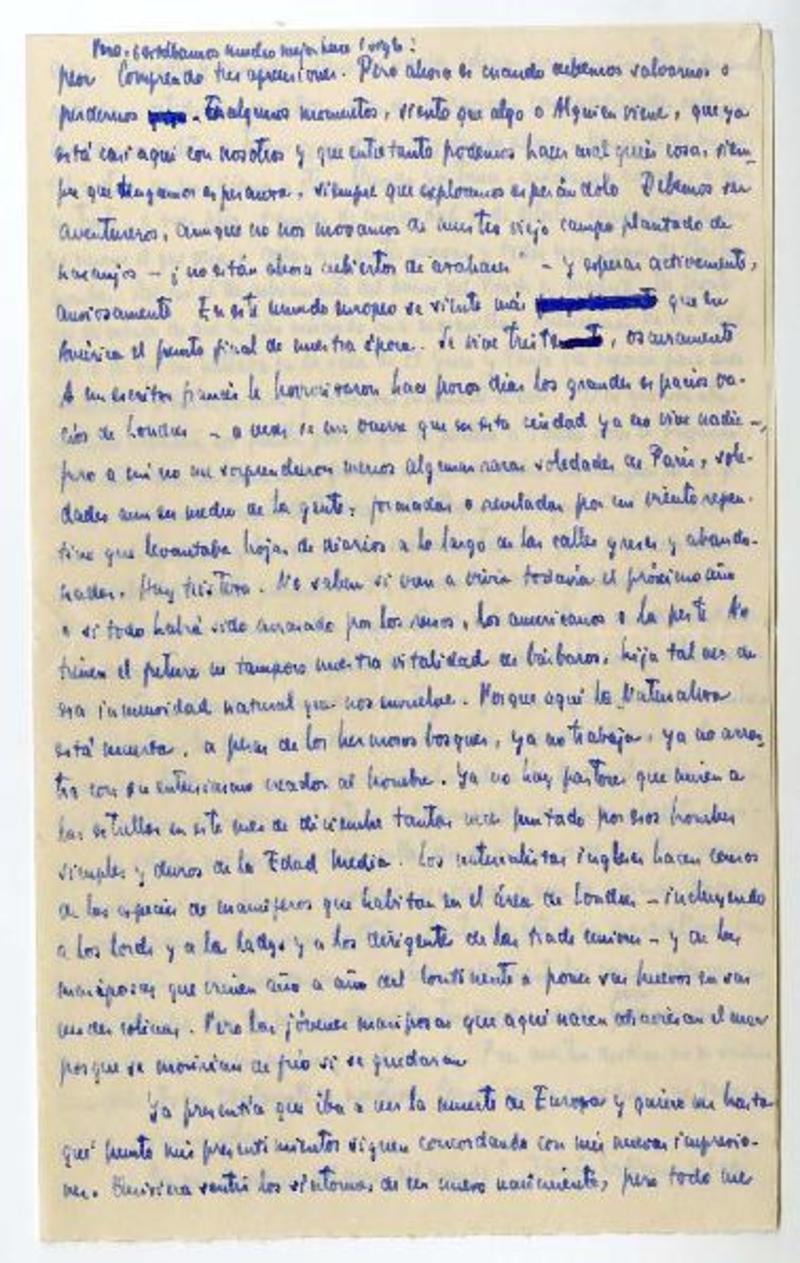 Pero ¿estábamos mucho mejor hace 1 siglo?
peor Comprendo tus aprensiones. Pero ahora es cuando debemos salvarnos o
perdernos. En algunos momentos, siento que algo o Alguien viene, que ya
está casi aquí con nosotros y que entretanto podemos hacer cualquier cosa, siem-
pre que tengamos esperanza, siempre que exploremos esperándolo Debemos ser
aventureros, aunque no nos movamos de nuestro viejo campo plantado de
naranjos – ¿no están ahora cubiertos de azahares? – y esperar activamente,
ansiosamente En este mundo europeo se siente más que en
América el punto final de nuestra época. Se vive triste, oscuramente
A un escritor francés le horrorizaron hace pocos días los grandes espacios va-
cíos de Londres – a veces se me ocurre que en esta ciudad ya no vive nadie –,
pero a mí no me sorprendieron menos algunas raras soledades de París, sole-
dades aun en medio de la gente, formadas o reveladas por un viento repen-
tino que levantaba hojas de diarios a lo largo de las calles grises y abando-
nadas. Hay tristeza. No saben si van a vivir todavía el próximo año
o si todo habrá sido arrasado por los rusos, los americanos o la peste No
tienen el futuro ni tampoco nuestra vitalidad de bárbaros, hija tal vez de
esa inmensidad natural que nos envuelve. Porque aquí la Naturaleza
está muerta, a pesar de los hermosos bosques, ya no trabaja, ya no arras-
tra con su entusiasmo creador al hombre. Ya no hay pastores que miren a
las estrellas en este mes de diciembre tantas veces pintado por esos hombres
simples y duros de la Edad Media. Los naturalistas ingleses hacen censos
de las especies de mamíferos que habitan en el área de Londres – incluyendo
a los lords y a las ladys y a los dirigentes de las trade unions – y de las
mariposas que vienen año a año del Continente a poner sus huevos en sus
verdes colinas. Pero las jóvenes mariposas que aquí nacen atraviesan el mar
porque se morirían de frío si se quedaran
Ya presentía que iba a ver la muerte de Europa y quiero ver hasta
qué punto mis presentimientos siguen concordando con mis nuevas impresio-
nes. Quisiera sentir los síntomas de un nuevo nacimiento, pero todo me